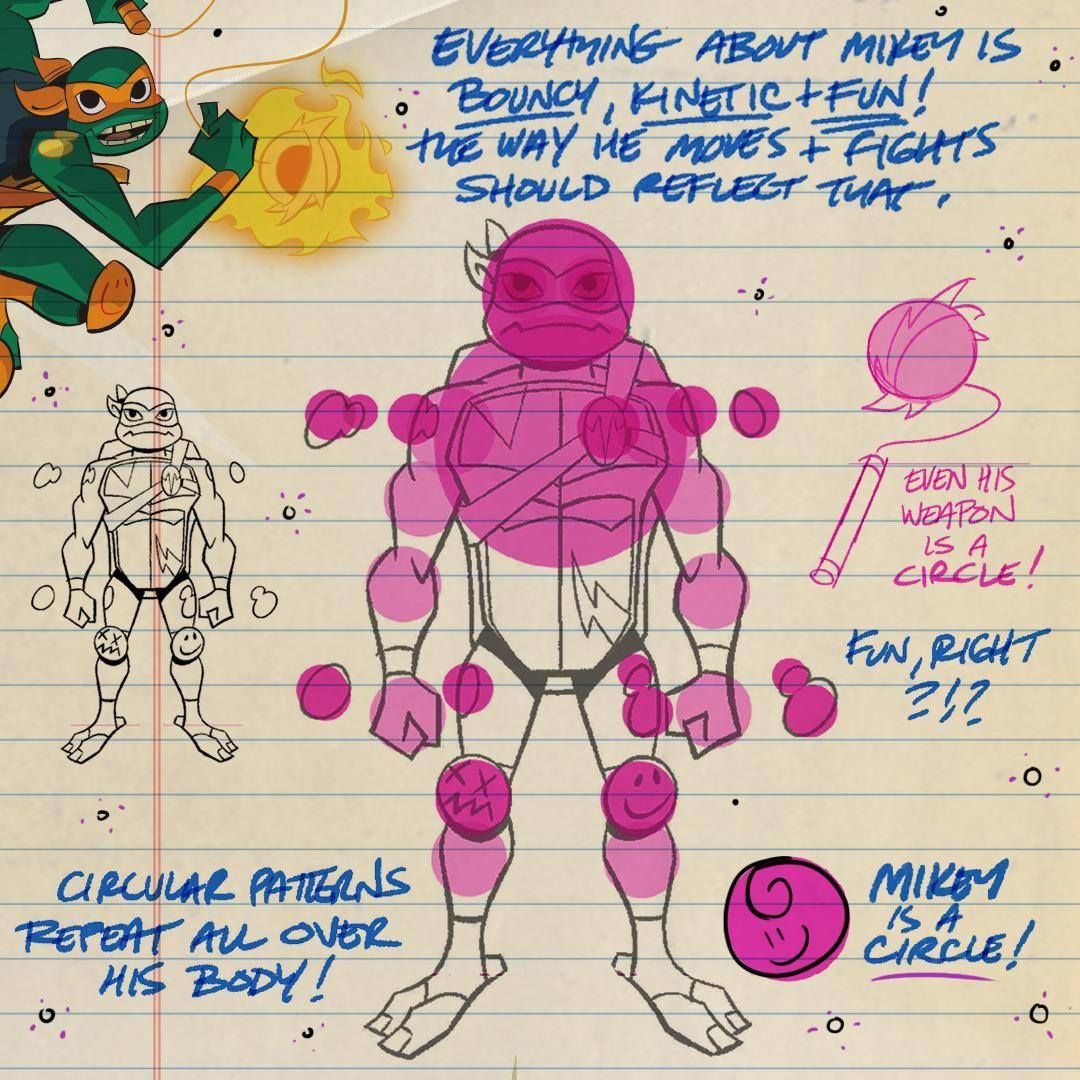 EVERYTHING ABOUT MIKEY IS
BOUNCY, KINETIC + FUN!
THE WAY HE MOVES + FIGHTS
SHOULD REFLECT THAT.
EVEN HIS
WEAPON
IS A
CIRCLE!
FUN, RIGHT
?!?
CIRCULAR PATTERNS
REPEAT ALL OVER
HIS BODY!
MIKEY
IS A
CIRCLE!